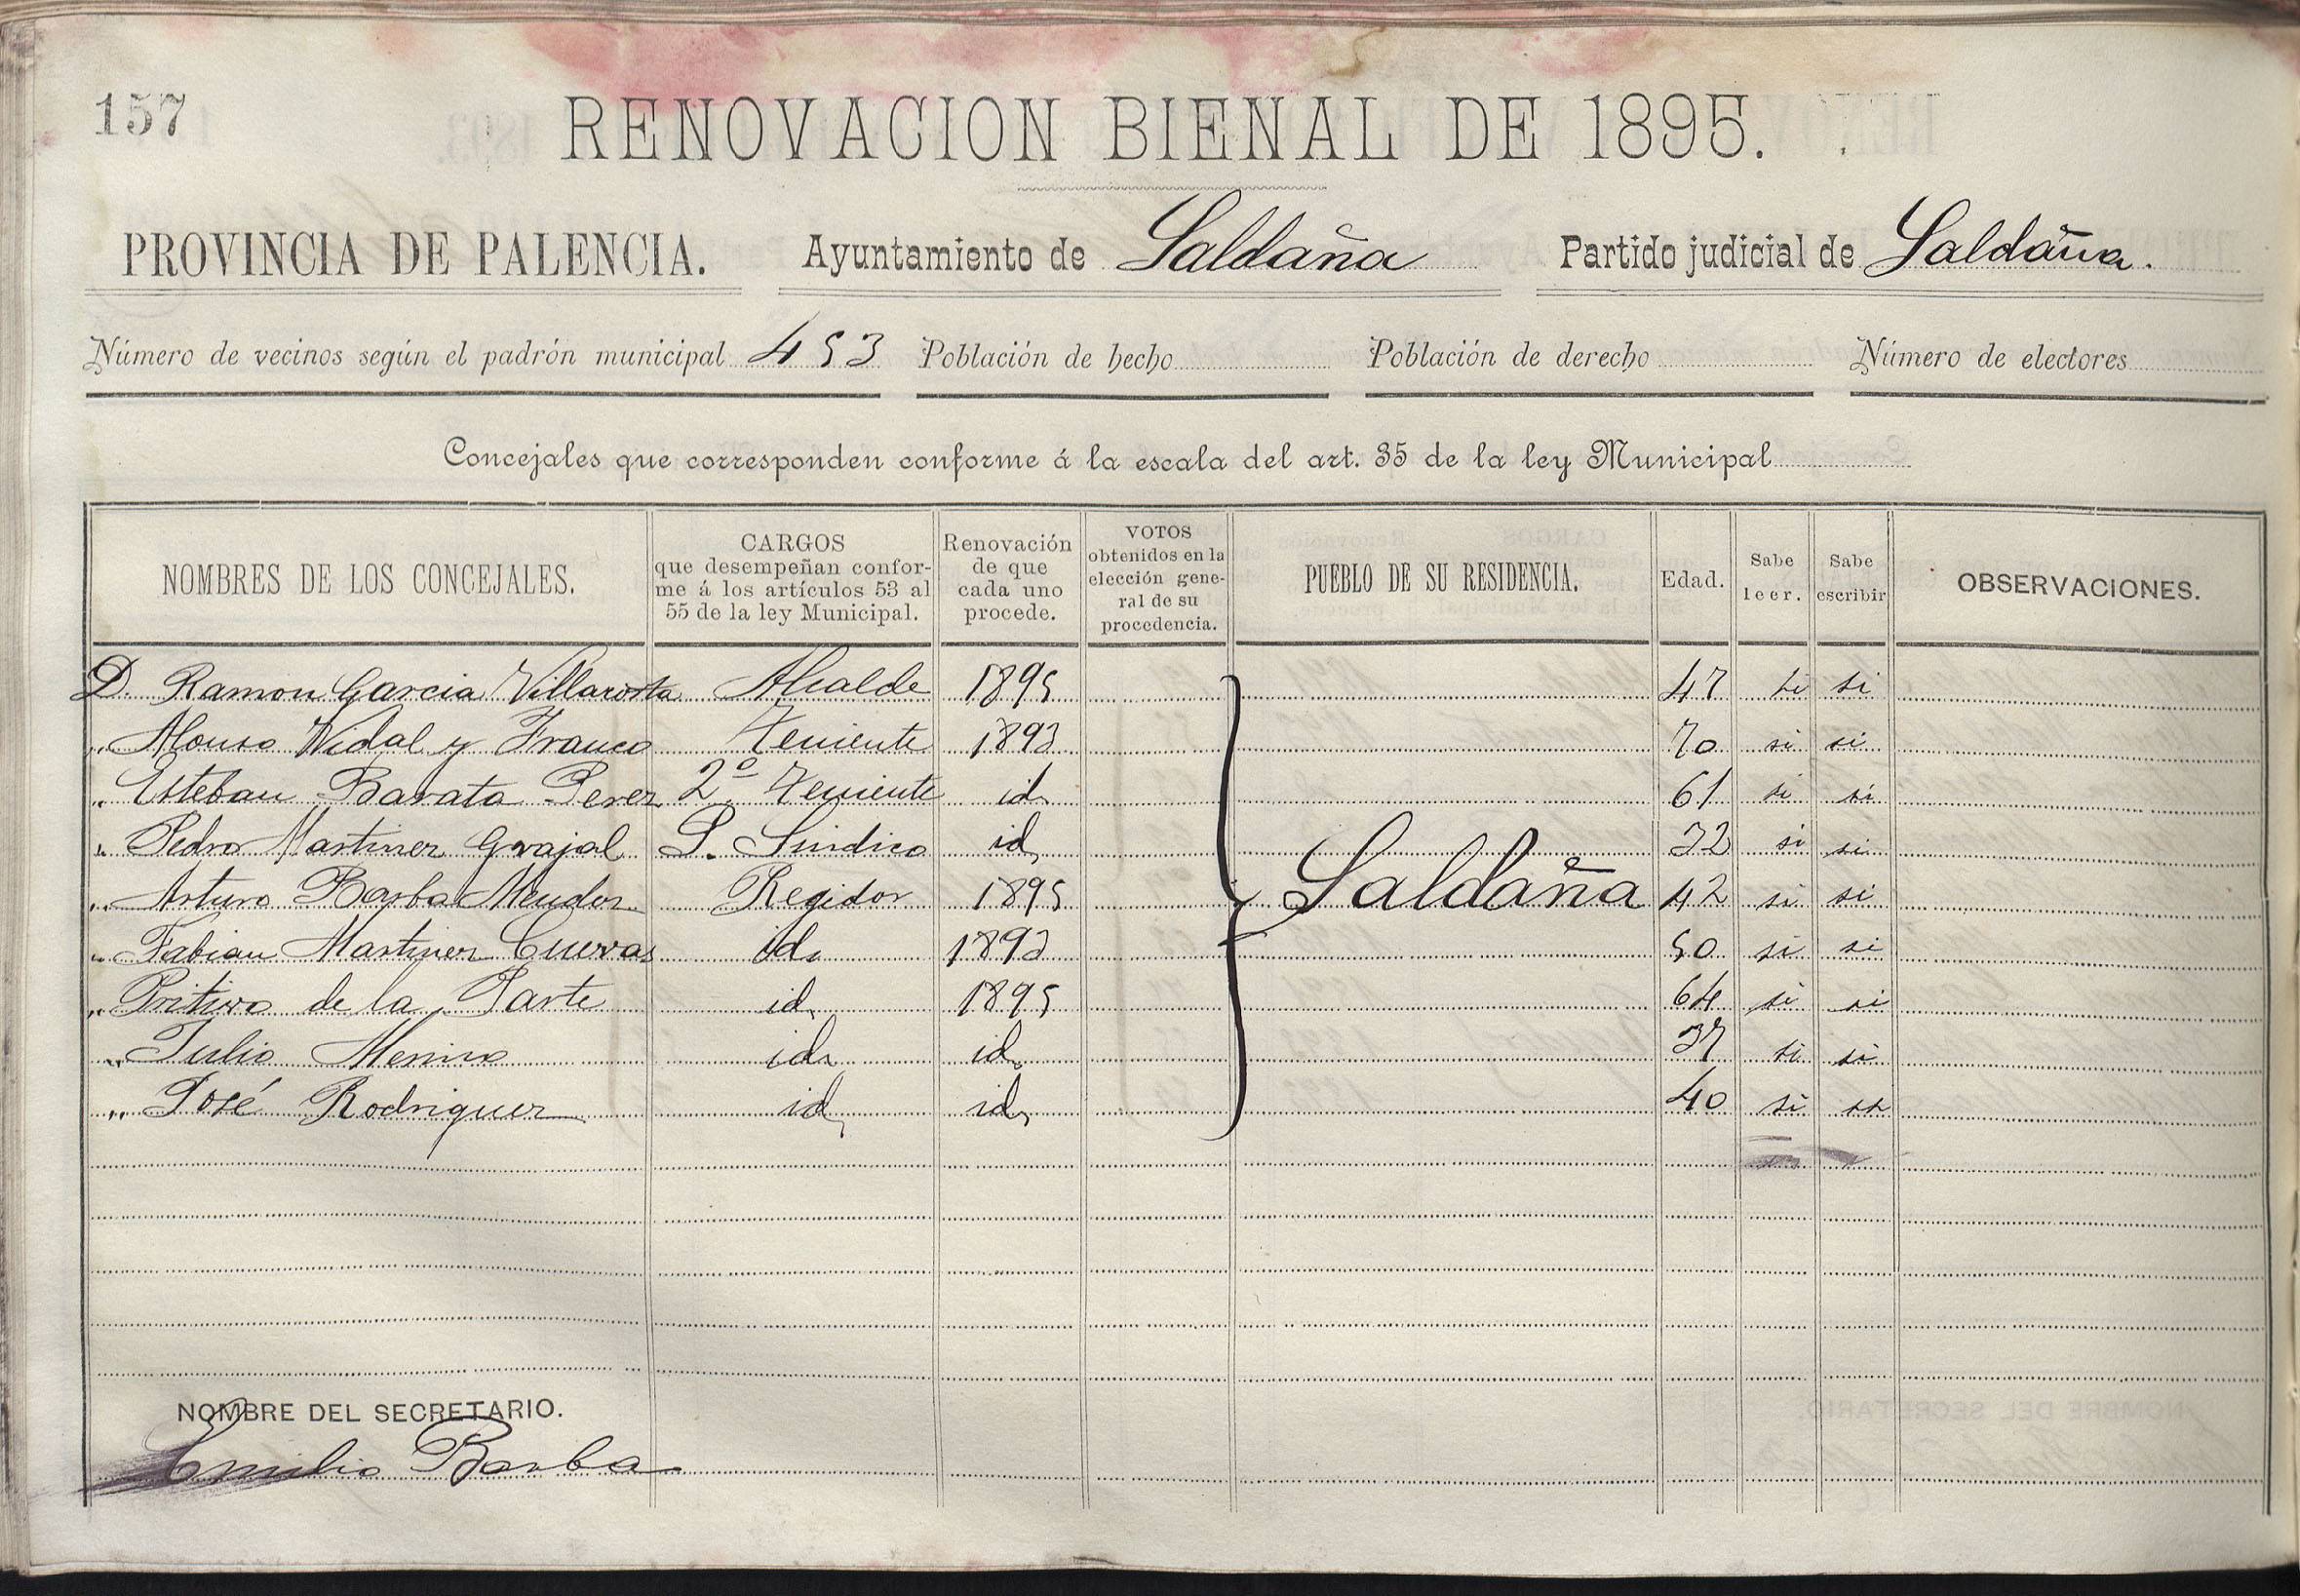 157
RENOVACION BIENAL DE 1895.
PROVINCIA DE PALENCIA. Ayuntamiento de Saldaña Partido judicial de Saldaña.
Número de vecinos según el padrón municipal 453 Población de hecho Población de derecho Número de electores
Concejales que corresponden conforme á la escala del art. 35 de la ley Municipal
NOMBRES DE LOS CONCEJALES.
CARGOS
que desempeñan confor-
me á los artículos 53 al
55 de la ley Municipal.
Renovación
de que
cada uno
procede.
VOTOS
obtenidos en la
elección gene-
ral de su
procedencia.
PUEBLO DE SU RESIDENCIA.
Edad.
Sabe
leer.
Sabe
escribir
OBSERVACIONES.
D. Ramon Garcia Alcalde 1895 47 si si
" Alonso Vidal y Franco Teniente 1893 70 si si
" Esteban Barata Perez 2º Teniente id. 61 si si
" Pedro Martinez Grajal P. Sindico id. 32 si si
" Arturo Barba Mendez Regidor 1895 Saldaña 42 si si
" Fabian Martinez Cuevas id. 1893 50 si si
" de la Parte id. 1895 64 si si
" Julio Merino id. id. 37 si si
" José Rodriguez id. id. 40 si si
NOMBRE DEL SECRETARIO.
Emilio Barba